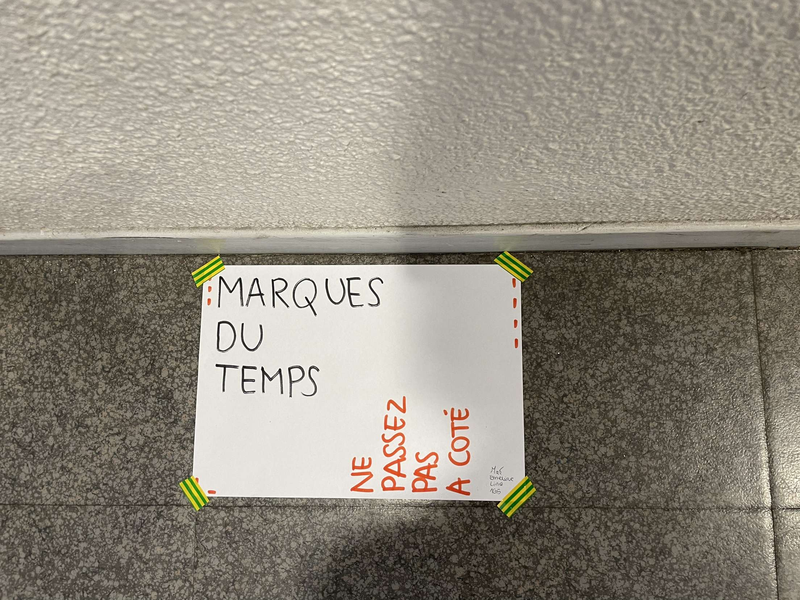 MARQUES
DU
TEMPS
NE
PASSEZ
PAS
A COTÉ